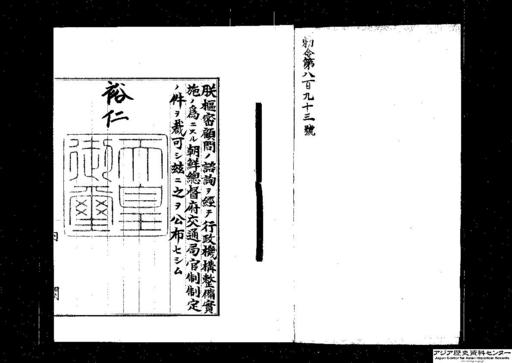 勅令第八百九十三號
朕樞密顧問ノ諮詢ヲ經テ行政機構整備實
施ノ爲ニスル朝鮮總督府交通局官制制定
ノ件ヲ裁可シ玆ニ之ヲ公布セシム
裕仁
天皇
御璽
内閣
アジア歴史資料センター
Japan Center for Asian Historical Records